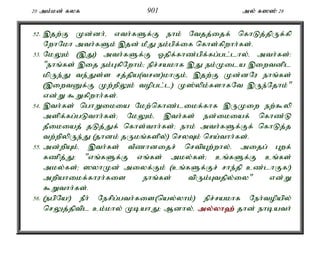 20 அம்மன் கலக 901 அல் கஸஸ் 28
52. இதற்கு முன்னர், எவர்களுக்கு நாம் வேதத்தைக் கொடுத்திருக்கி
றோமோ அவர்களும் இதன் மீது நம்பிக்கை கொள்கிறார்கள்.
53. மேலும் (இது) அவர்களுக்கு ஓதிக்காண்பிக்கப்பட்டால், அவர்கள்:
"நாங்கள் இதை நம்புகிறோம்; நிச்சயமாக இது நம்முடைய இறைவனிட
மிருந்து வந்துள்ள சத்திய(வசன)மாகும், இதற்கு முன்னரே நாங்கள்
(இறைவனுக்கு முற்றிலும் வழிபட்ட) முஸ்லிம்களாகவே இருந்தோம்"
என்று கூறுகிறார்கள்.
54. இவர்கள் பொறுமையை மேற்கொண்டமைக்காக இருமுறை நற்கூலி
அளிக்கப்படுவார்கள்; மேலும், இவர்கள் நன்மையைக் கொண்டு
தீமையைத் தடுத்துக் கொள்வார்கள்; நாம் அவர்களுக்குக் கொடுத்த
வற்றிலிருந்து (தானம் தருமங்களில்) செலவும் செய்வார்கள்.
55. அன்றியும், இவர்கள் வீணானதைச் செவியுற்றால், அதைப் புறக்
கணித்து: "எங்களுக்கு எங்கள் அமல்கள்; உங்களுக்கு உங்கள்
அமல்கள்; ஸலாமுன் அலைக்கும் (உங்களுக்குச் சாந்தி உண்டாகுக!)
அறியாமைக்காரர்களை நாங்கள் விரும்புவதில்லை" என்று
கூறுவார்கள்.
56. (நபியே!) நீர் நேசிப்பவர்களை(யெல்லாம்) நிச்சயமாக நேர்வழியில்
செலுத்திவிட உம்மால் முடியாது; ஆனால், அல்லாஹ் தான் நாடியவர்